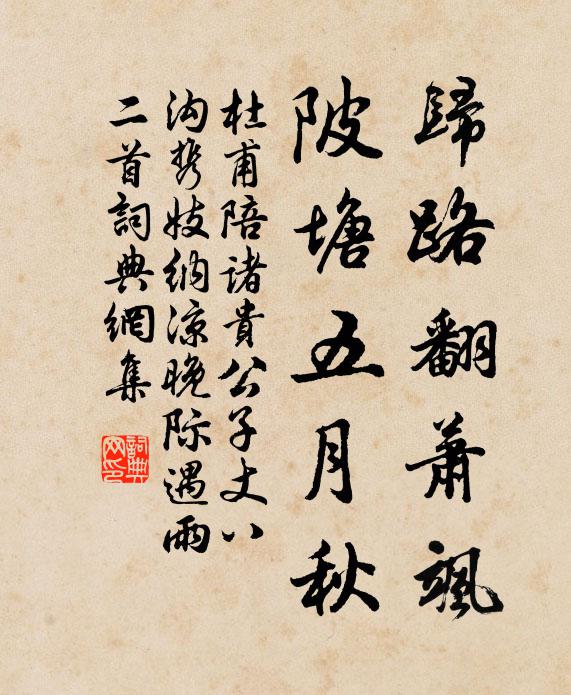 歸路翻蕭颯
陂塘五月秋
杜甫陪諸貴公子丈八
沟携妓納凉晚际遇雨
二首詞典網集
詞典网印